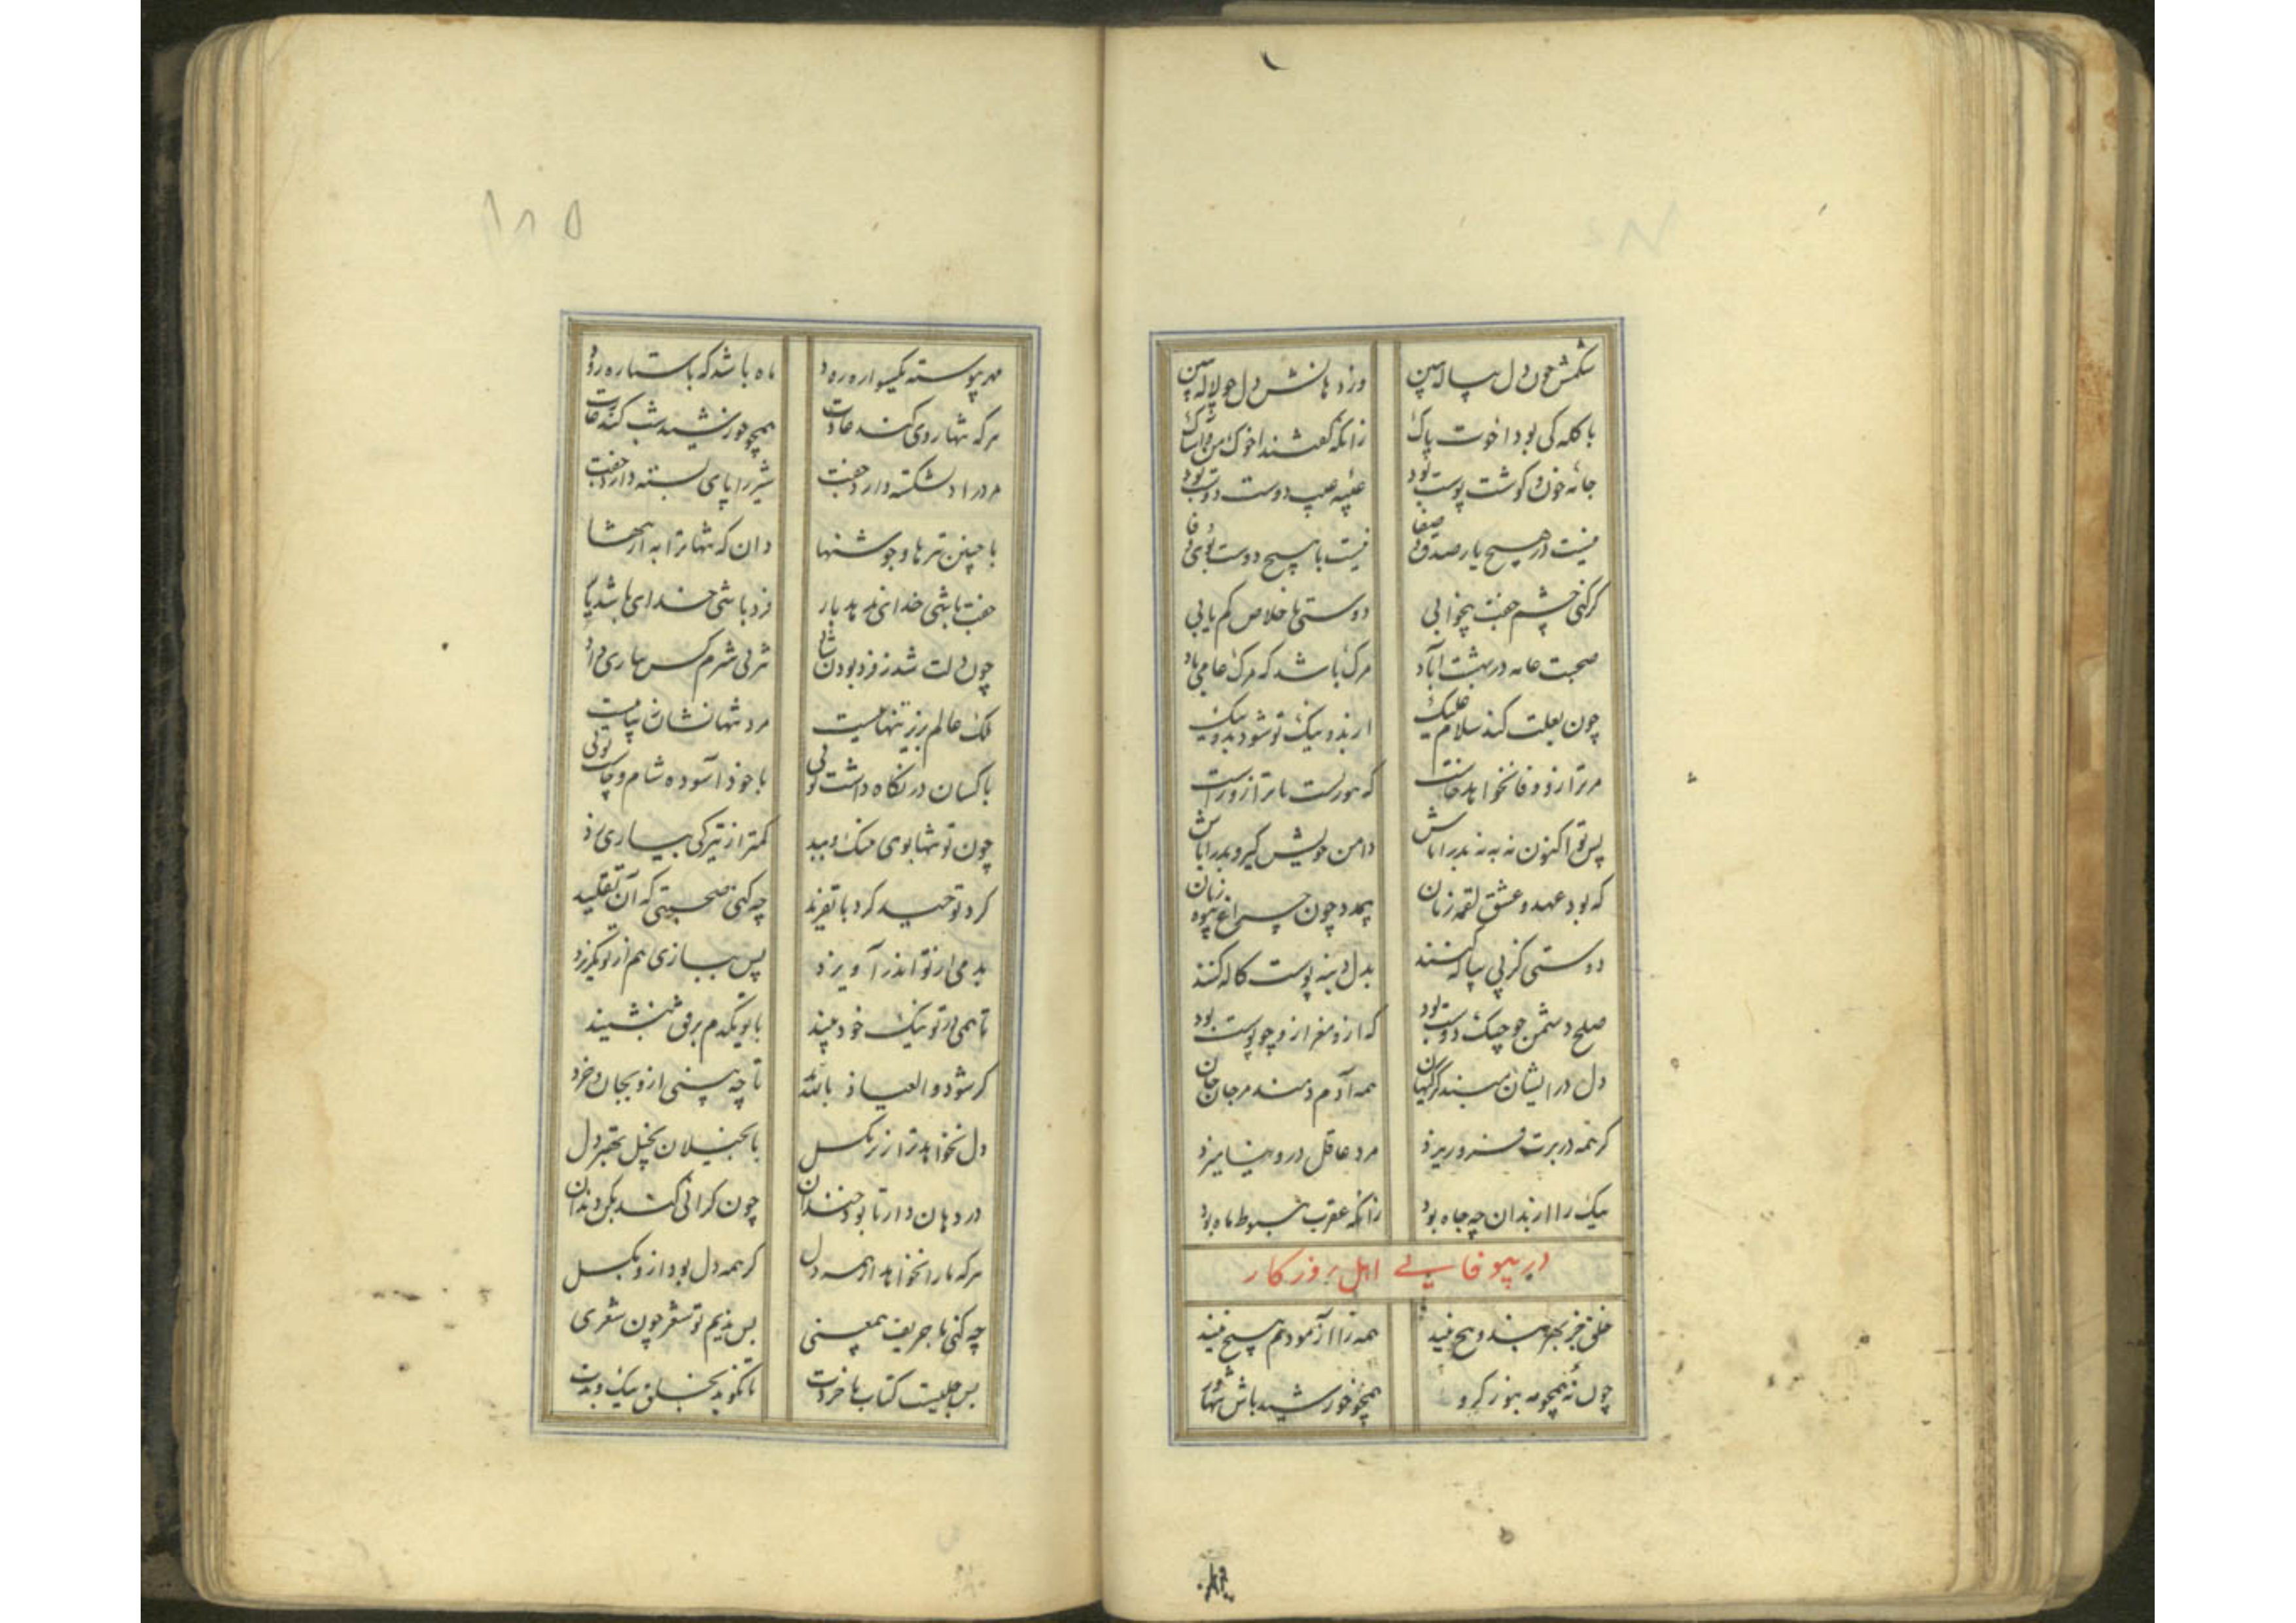 شکمش چون دل پیاله ببین
وز دهانش دل چو لاله ببین
با کله کی بود اخوت پاک
زانکه گفتند اخوک من واساک
جانه خون و گوشت پوست بود
عیبه عیب دوست دوست بود
نیست در هیچ یار صدق و صفا
نیست با هیچ دوست بوی وفا
گر کنی چشم جفت بیخوابی
دوستی با خلاص کم یابی
صحبت عامه در بهشت آباد
مرگ باشد که مرگ عامی باد
چون بعلت کند سلام علیک
از بد و نیک تو شود بد و نیک
مر ترا زو وفا نخواهد خاست
که هور است با تر از و راست
پس تو اکنون نه به نه بدرا باش
دامن خویش گیر و بدرا باش
که بود عهد و عشق لقمه زنان
بیمدد چون چراغ بیوه زنان
دوستی کز پی پیاله کنند
بدل دبنه پوست کاله کنند
صلح دشمن چو جنگ دوست بود
که ازو مغز ازو چو پوست بود
دل در ایشان مبند کز کیهان
همه آدم دمند مرجان جان
گر همه در برت فرو ریزد
مرد عاقل درو نیامیزد
نیک را از بدان چه جاه بود
زانکه عقرب هبوط ماه بود
در بیوفایی اهل روزگار
خلق جز بهر بند و پیچ نیند
همه را آزمودم هیچ نیند
چون نه همچو مه بنور گرو
همچو خورشید باش تنها رو
مهر پیوسته یکسواره رود
ماه باشد که با ستاره رود
هر که تنها روی کند عادت
همچو خورشید شب کند غارت
مرد را دلشکسته دارد جفت
شیر را پای بسته دارد جفت
با چنین تر ها و جوشنها
دان که تنها ترا به از تنها
جفت باشی خدای ندهد بار
فرد باشی خدای باشد یار
چون دلت شد ز فرد بودن شاد
ملک عالم بزیر تنهاییست
مرد تنها نشان زیباییست
با کسان در نگاه داشت توئی
با خود آسوده شام و چاشت توئی
چون تو تنها بوی جنگ و بید
کمتر از تیرگی بیاری برد
کرد توحید گرد با تفرید
چه کنی صحبتی که آن تقلید
بد می از تو اندر آویزد
پس ببازی هم از تو بگریزد
تا همی در تو نیک خود بیند
با تو یکدم برفق ننشیند
گر شود و العیاذ بالله
تا چه بینی ازو بجان و خرد
دل نخواهد ترا ز زر بگسل
با بخیلان بخیل بهتر دل
در دهان دار تا بود خندان
چون گرانی کند بکن دندان
هر که ما را نخواهد از همه دل
گر همه دل بود ازو بگسل
چه کنی با حریف بیمعنی
بس ندیم تو شعر چون شعری
بس جلیست کتاب با خردت
تا نگوید بخلق نیک و بدت